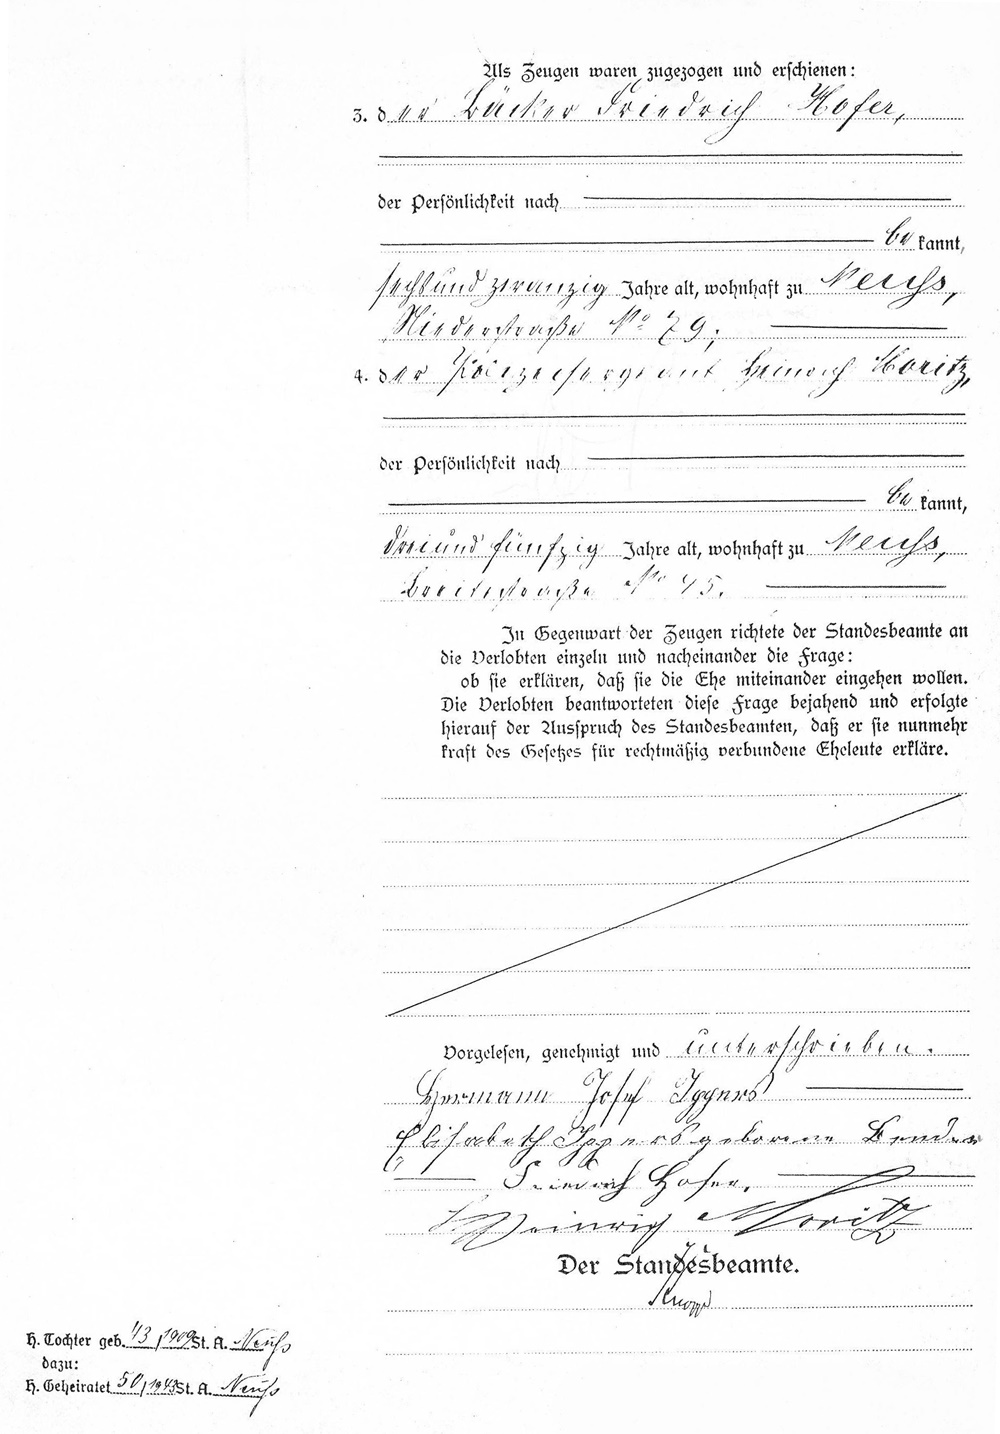 Als Zeugen waren zugezogen und erschienen:
3. der Bäcker Friedrich Hofer,
der Persönlichkeit nach
bekannt,
sechsundzwanzig Jahre alt, wohnhaft zu Neuss,
Niederstraße No 79;
4. der Polizeisergeant Heinrich Moritz,
der Persönlichkeit nach
bekannt,
dreiundfünfzig Jahre alt, wohnhaft zu Neuss,
Breitestraße No 45.
In Gegenwart der Zeugen richtete der Standesbeamte an
die Verlobten einzeln und nacheinander die Frage:
ob sie erklären, daß sie die Ehe miteinander eingehen wollen.
Die Verlobten beantworteten diese Frage bejahend und erfolgte
hierauf der Ausspruch des Standesbeamten, daß er sie nunmehr
kraft des Gesetzes für rechtmäßig verbundene Eheleute erkläre.
Vorgelesen, genehmigt und unterschrieben.
Hermann Josef Ippers
Elisabeth Ippers geborene Bender
Friedrich Hofer.
Heinrich Moritz
Der Standesbeamte.
H. Tochter geb. 43/1909 St. A. Neuss
dazu:
H. Geheiratet 50/1943 St. A. Neuss